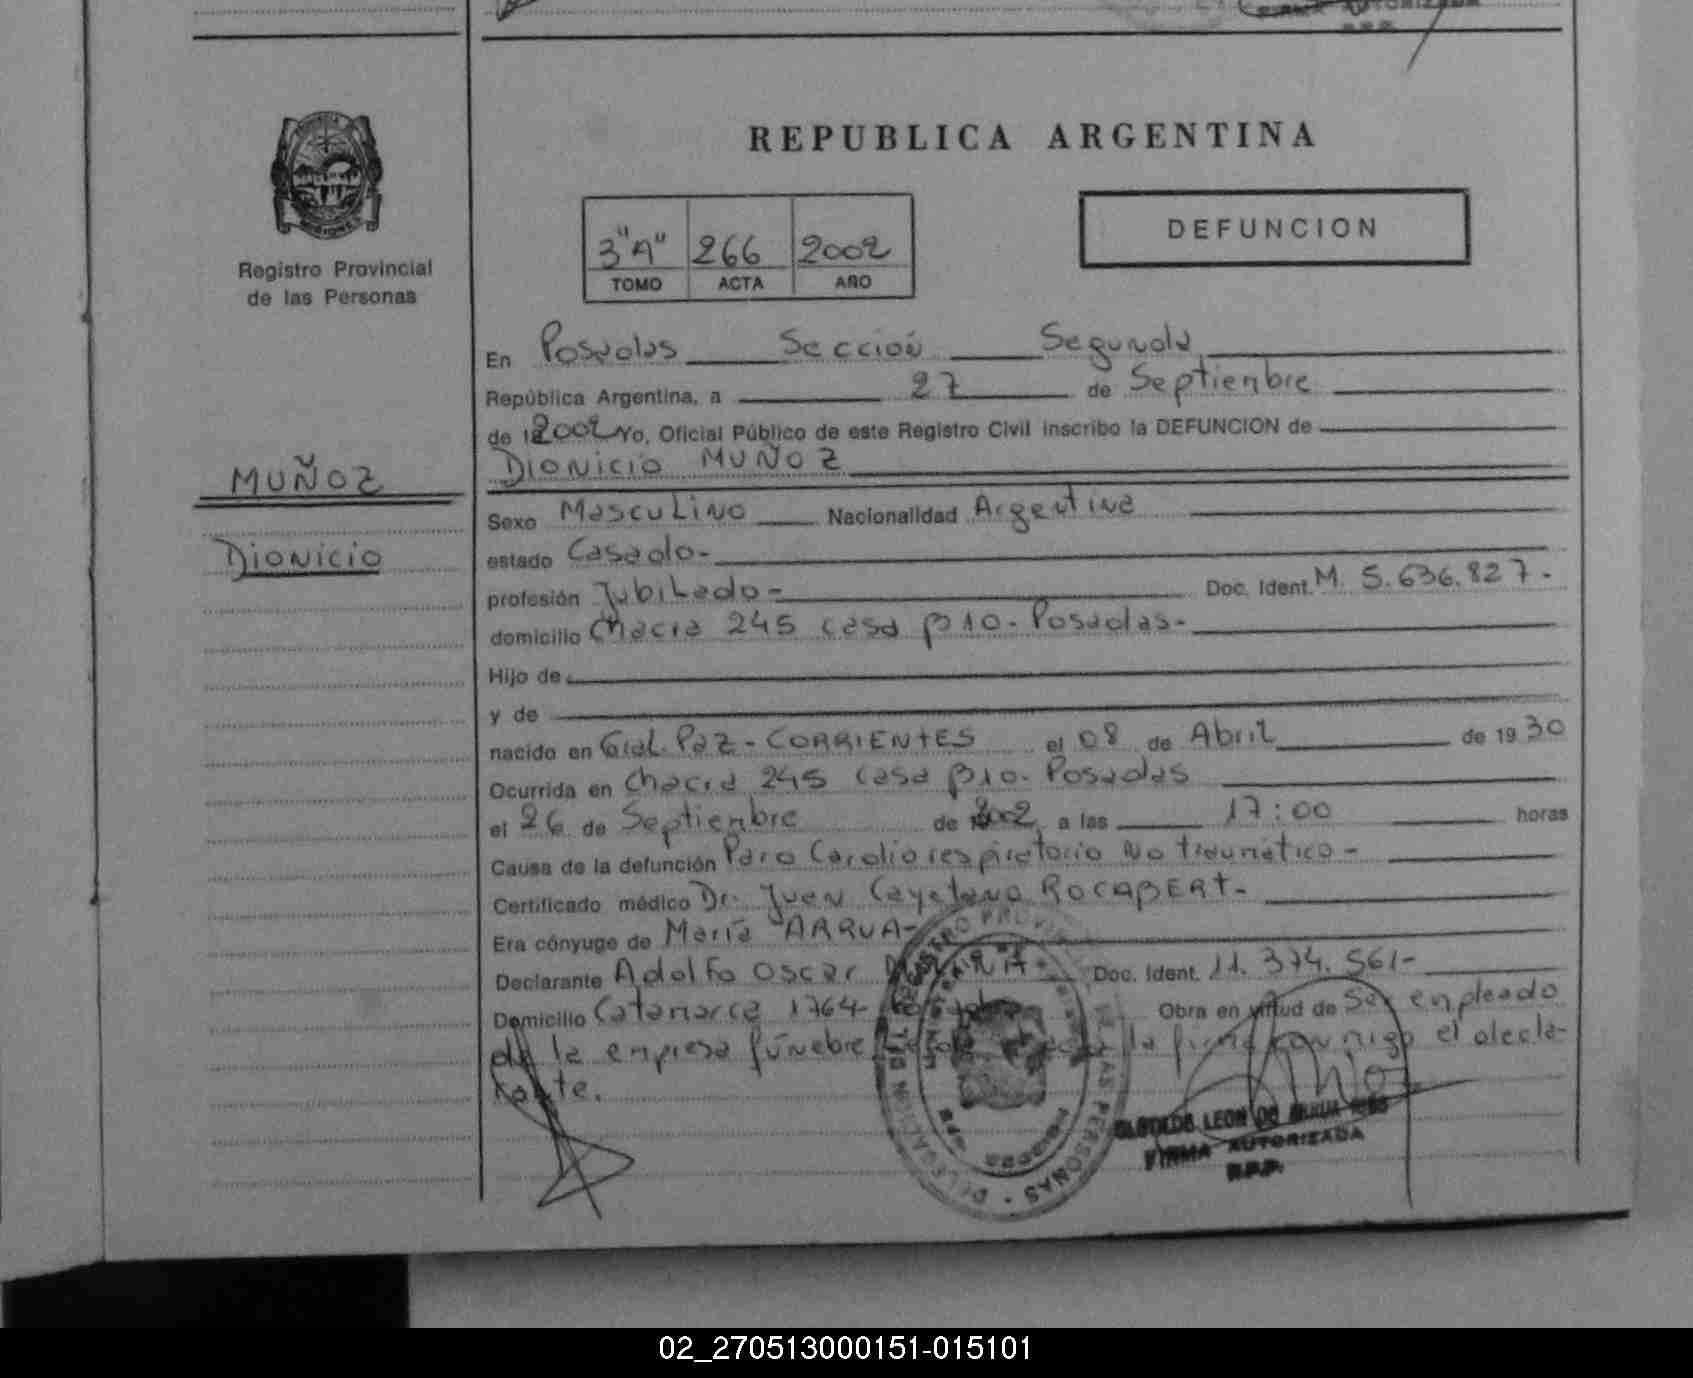 REPUBLICA ARGENTINA
Registro Provincial
de las Personas
3"A" 266 2002
TOMO ACTA AÑO
DEFUNCION
MUÑOZ
Dionicio
En Posadas Sección Segunda
República Argentina, a 27 de Septienbre
de 2002 Yo, Oficial Público de este Registro Civil inscribo la DEFUNCION de
Dionicio MUÑOZ
Sexo Masculino Nacionalidad Argentina
estado Casado-
profesión Jubilado- Doc. Ident. M. 5.636.827.-
domicilio Chacra 245 casa β10.- Posadas.-
Hijo de
y de
nacido en Gral. Paz - CORRIENTES el 08 de Abril de 1930
Ocurrida en Chacra 245 casa β10.- Posadas
el 26 de Septienbre de 2002 a las 17:00 horas
Causa de la defunción Paro Cardiorespiratorio No traunatico -
Certificado médico Dr. Juan Cayetano ROCABERT.-
Era cónyuge de Maria ARRUA-
Declarante Adolfo Oscar Doc. Ident. 11.374.561-
Domicilio Catanarca 1764- Obra en virtud de Ser enpleado
de la enpresa fúnebre la firna connigo el decla-
rante.
DELEGACION DEL REGISTRO PROVINCIAL DE LAS PERSONAS
LEON DO
FIRMA AUTORIZADA
R.P.P.
02_270513000151-015101